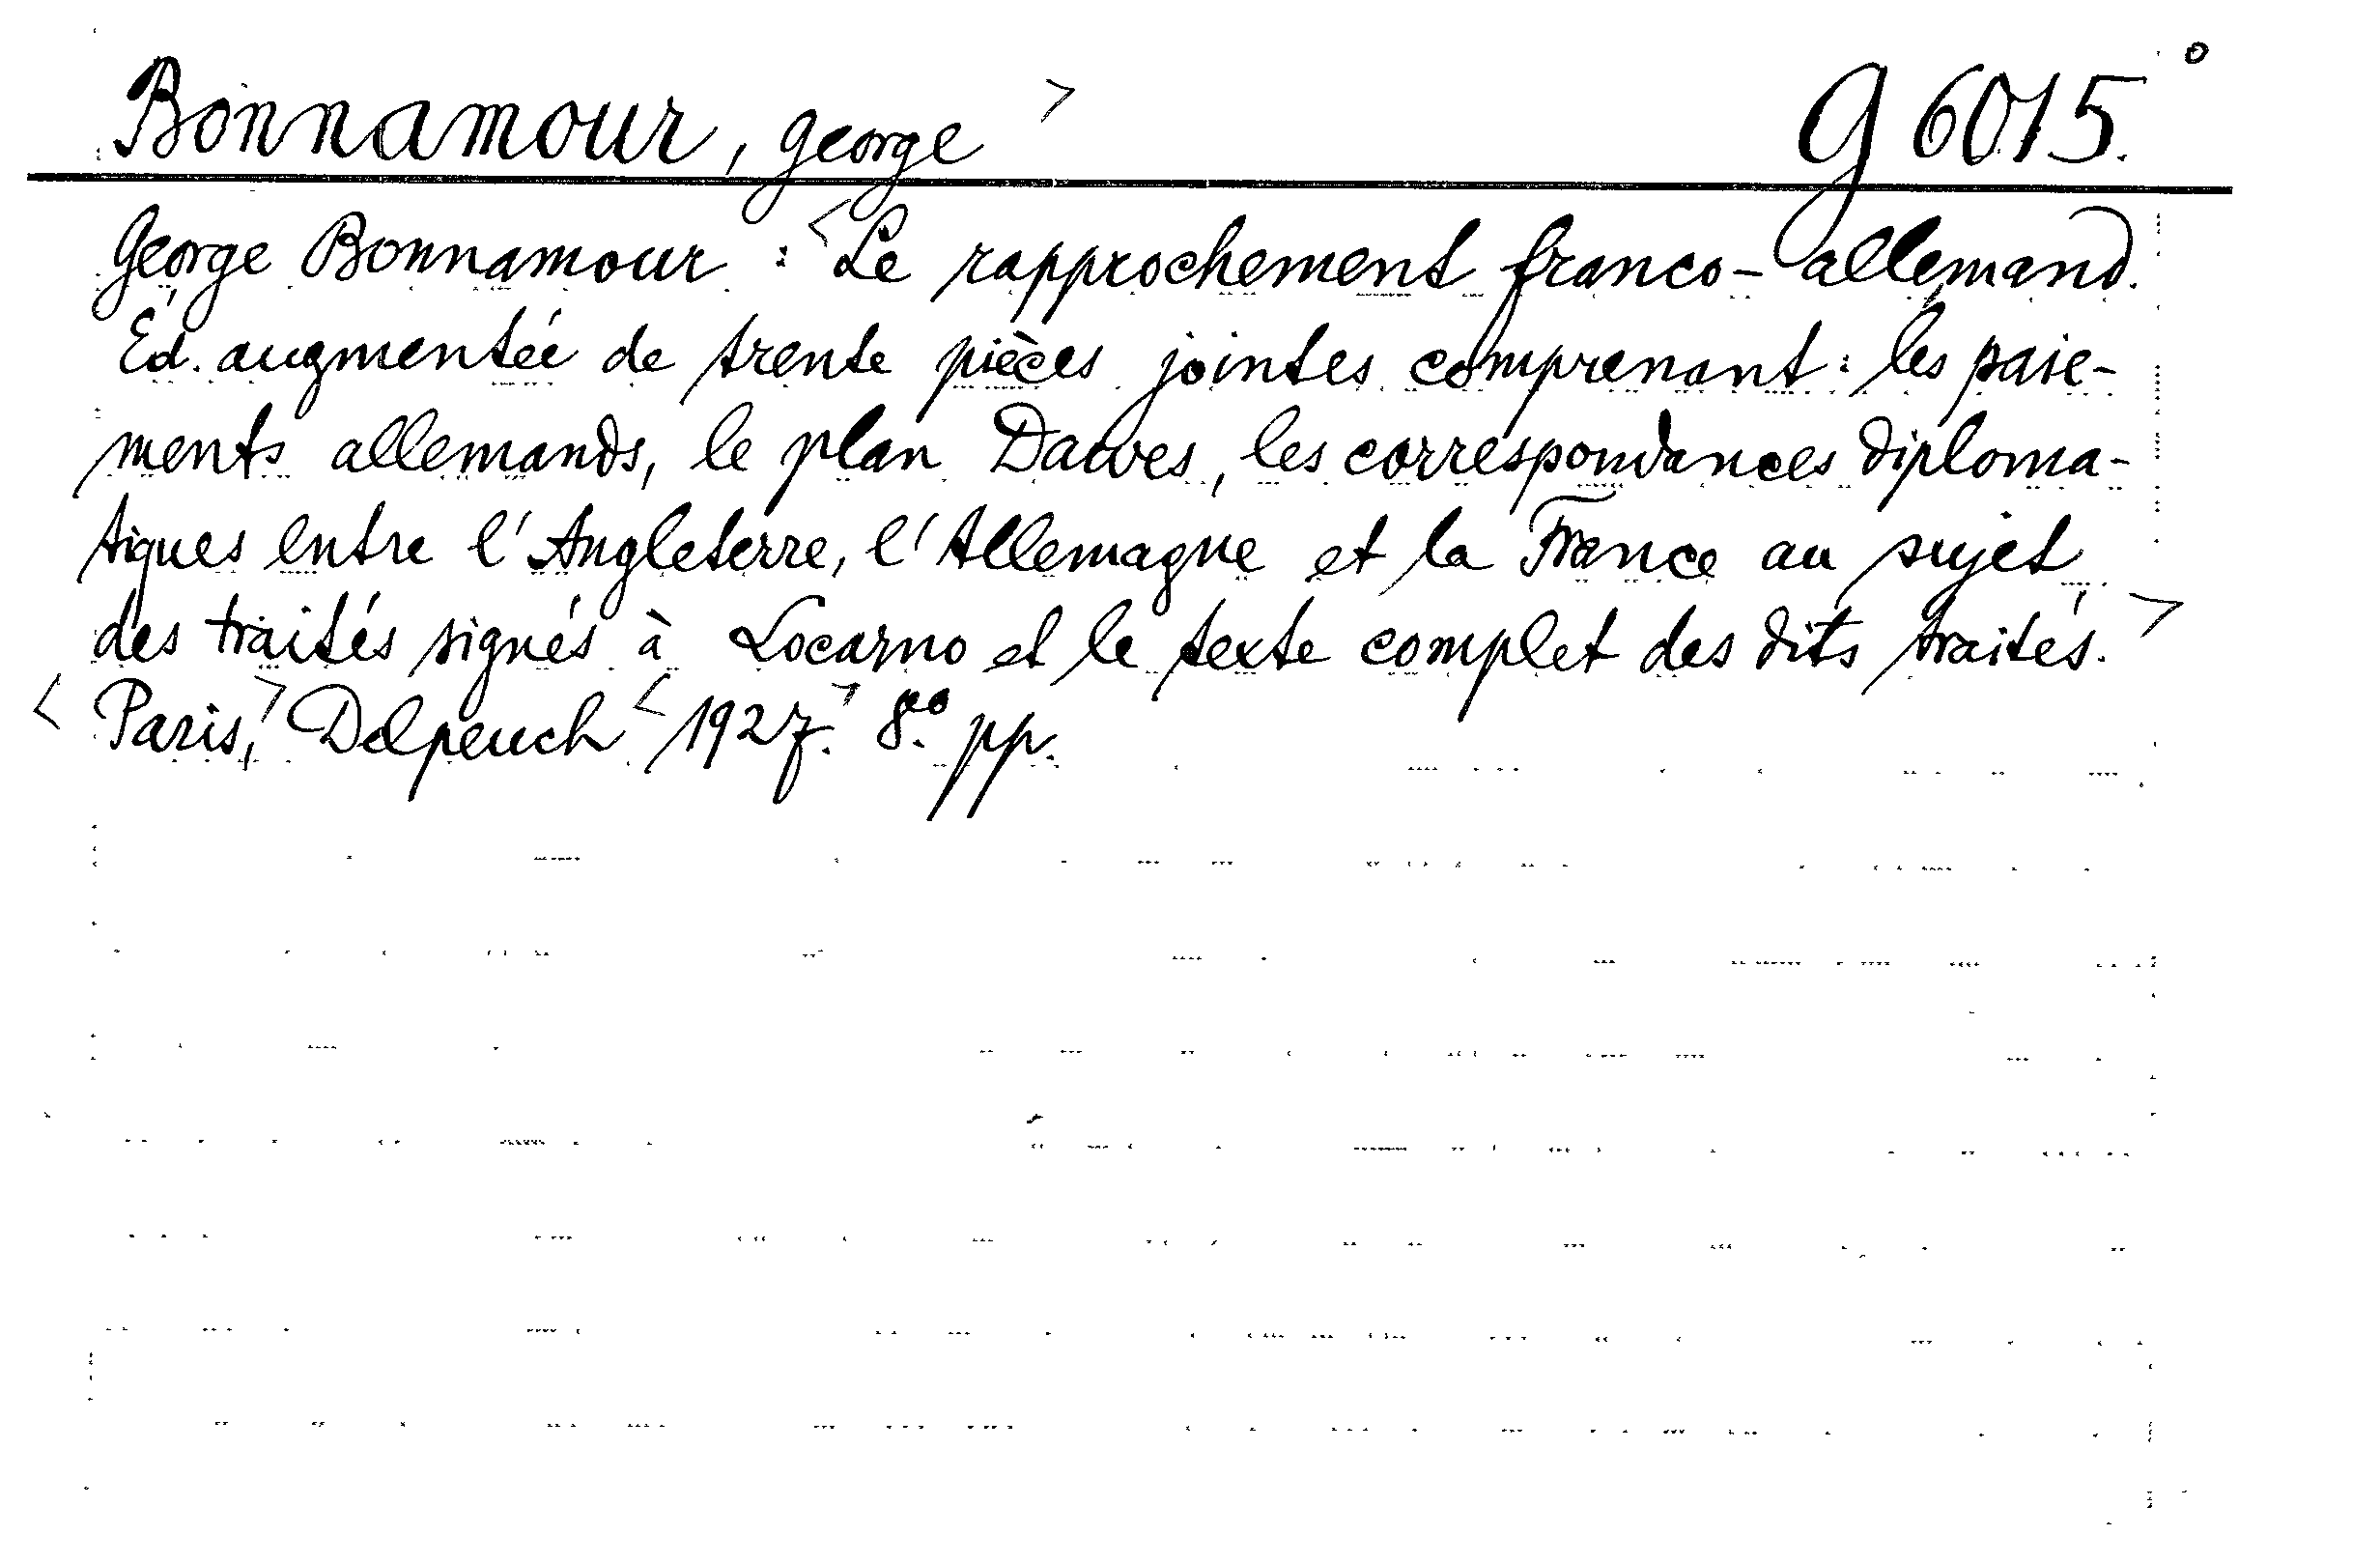 Bonnamour, George > G 6015. °
George Bonnamour : <Le rapprochement franco-allemand.
Éd. augmentée de trente pièces jointes comprenant : les paie-
ments allemands, le plan Dawes, les correspondances diploma-
tiques entre l'Angleterre, l'Allemagne et la France au sujet
des traités signés à Locarno et le texte complet des dits traités. >
< Paris, > Delpeuch < 1927. > 8º. pp.